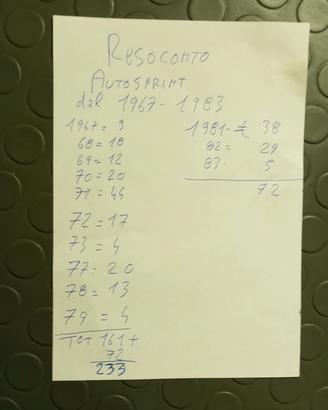 RESOCONTO
AUTOSPRINT
dal 1967 - 1983
1967 = 9
68 = 18
69 = 12
70 = 20
71 = 44
72 = 17
73 = 4
77 = 20
78 = 13
79 = 4
TOT 161 +
72
233
1981 = 38
82 = 29
83 - 5
72